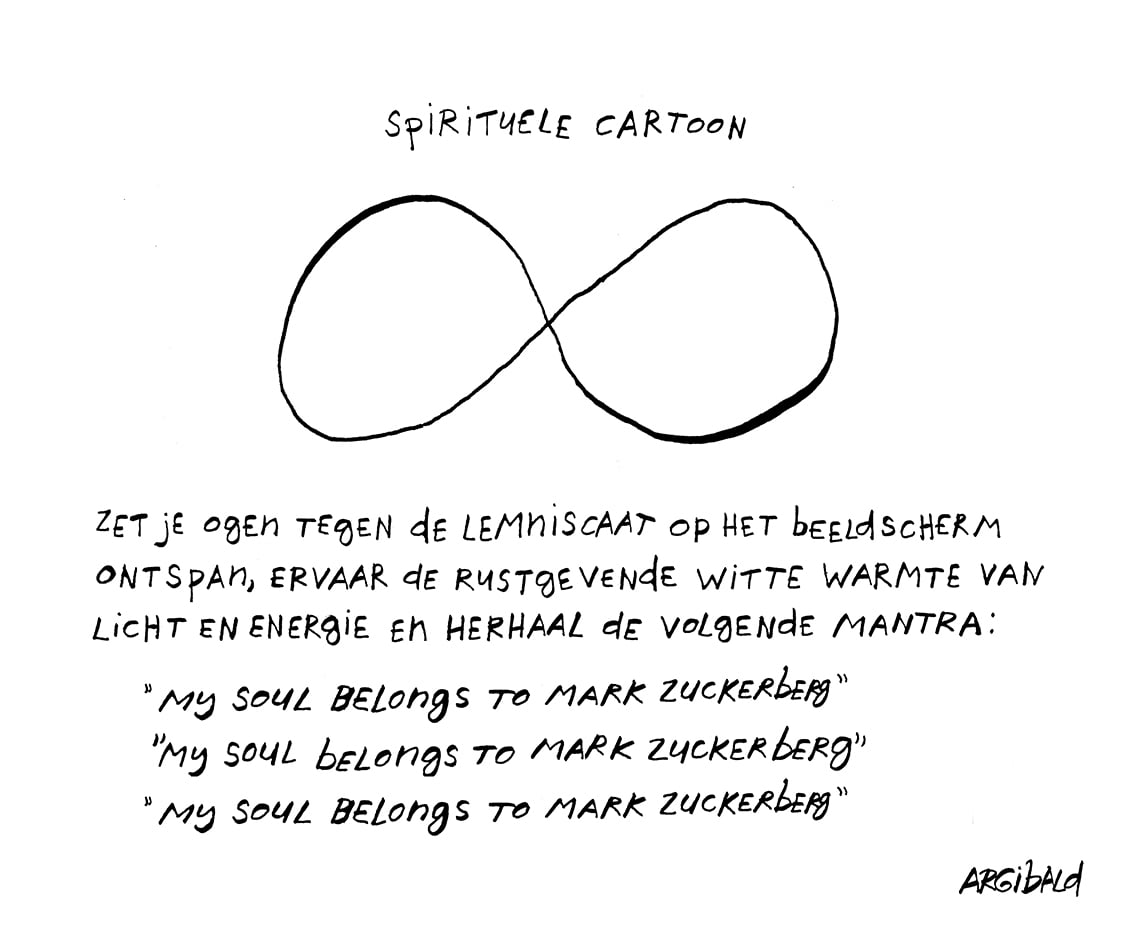 SPIRITUELE CARTOON
ZET JE OGEN TEGEN DE LEMNISCAAT OP HET BEELDSCHERM
ONTSPAN, ERVAAR DE RUSTGEVENDE WITTE WARMTE VAN
LICHT EN ENERGIE EN HERHAAL DE VOLGENDE MANTRA:
"MY SOUL BELONGS TO MARK ZUCKERBERG"
"MY SOUL BELONGS TO MARK ZUCKERBERG"
"MY SOUL BELONGS TO MARK ZUCKERBERG"
ARGIBALD